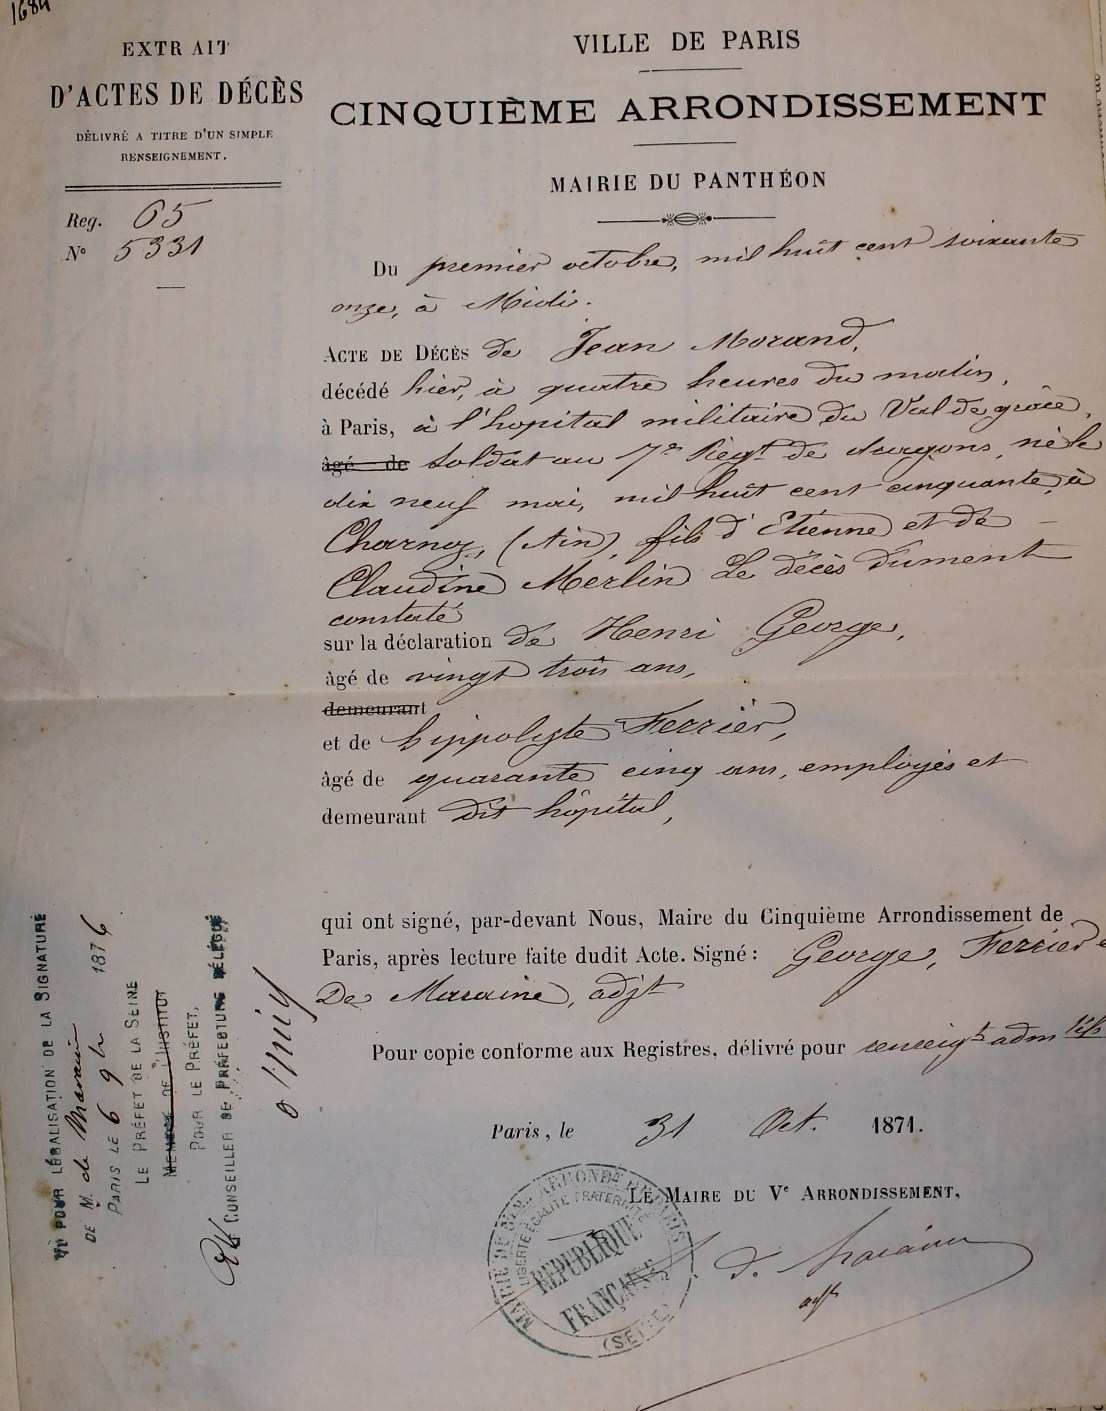 1684
EXTRAIT
D'ACTES DE DÉCÈS
DÉLIVRÉ A TITRE D'UN SIMPLE
RENSEIGNEMENT.
Reg. 65
N° 5331
VILLE DE PARIS
CINQUIÈME ARRONDISSEMENT
MAIRIE DU PANTHÉON
Du premier octobre, mil huit cent soixante
onze, à Midi.
ACTE DE DÉCÈS de Jean Morand,
décédé hier, à quatre heures du matin,
à Paris, à l'hopital militaire du Val de grâce,
âgé de soldat au 7e Régt de dragons, né le
dix neuf mai, mil huit cent cinquante, à
Charnoz, (Ain), fils d'Etienne et de
Claudine Merlin Le décès dument
constaté
sur la déclaration de Henri George,
âgé de vingt trois ans,
demeurant
et de hippolyte Ferrier,
âgé de quarante cinq ans, employés et
demeurant dit hôpital,
qui ont signé, par-devant Nous, Maire du Cinquième Arrondissement de
Paris, après lecture faite dudit Acte. Signé : George, Ferrier
De Maraine, adjt
Pour copie conforme aux Registres, délivré pour renseigts admtifs
Paris, le 31 Oct. 1871.
LE MAIRE DU Ve ARRONDISSEMENT,
D. Maraine
adjt
MAIRIE DU 5me ARRONDt DE PARIS
LIBERTÉ ÉGALITÉ FRATERNITÉ
RÉPUBLIQUE
FRANÇAISE
(SEINE)
VU POUR LÉGALISATION DE LA SIGNATURE
DE M. de Maraine
PARIS LE 6 9bre 1871
LE PRÉFET DE LA SEINE
MEMBRE DE L'INSTITUT
POUR LE PRÉFET,
CONSEILLER DE PRÉFECTURE DÉLÉGUÉ